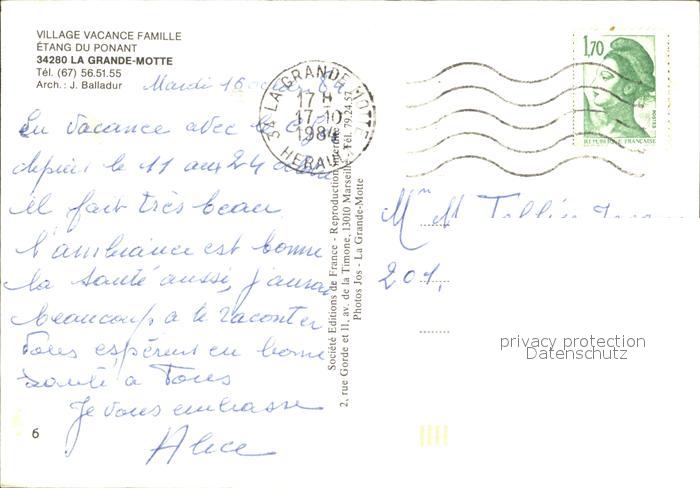 VILLAGE VACANCE FAMILLE
ÉTANG DU PONANT
34280 LA GRANDE-MOTTE
Tél. (67) 56.51.55
Arch. : J. Balladur
Mardi 16 84
En vacance avec le
depuis le 11 aux 24
il fait très beau
l'ambiance est bonne
la santé aussi, j'aurai
beaucoup a te raconter
Vous espérent en bonne
santé a Tous
Je vous embrasse
Alice
6
34 LA GRANDE MOTTE
17 H
17-10
1984
HERAULT
Société Editions de France - Reproduction interdite
2, rue Gorde et 11, av. de la Timone, 13010 Marseille, Tél. 79.24.57
Photos Jos - La Grande-Motte
1,70
POSTES
REPUBLIQUE FRANCAISE
201,
privacy protection
Datenschutz